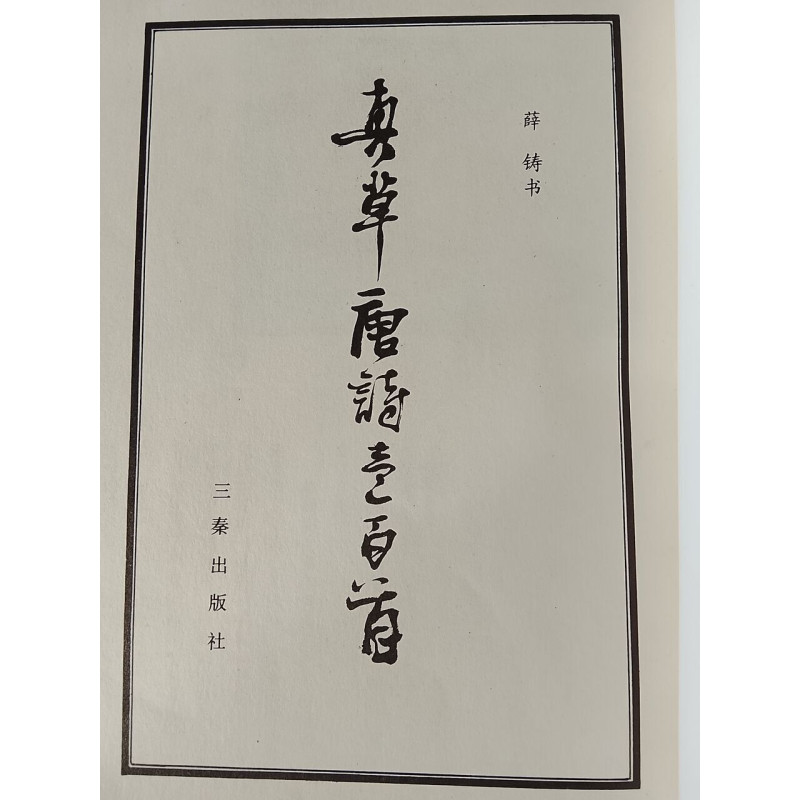 薛铸书
真草唐詩壹百首
三秦出版社